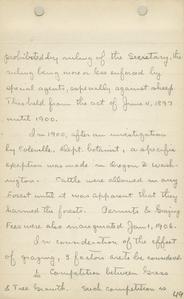 prohibited by ruling of the Secretary, the
ruling being more or less enforced by
special agents, especially against sheep.
This held from the act of June 4, 1897
until 1900.
In 1900, after an investigation
by Coleville, Dept. botanist, a specific
exception was made in Oregon & Wash-
ington. Cattle were allowed in any
Forest until it was apparent that they
harmed the forests. Permits & Grazing
Fees were also inaugurated Jan 1, 1906.
In consideration of the effect
of grazing, 3 factors are to be considered
1. Competition between Grass
& Tree Growth. Such competition is